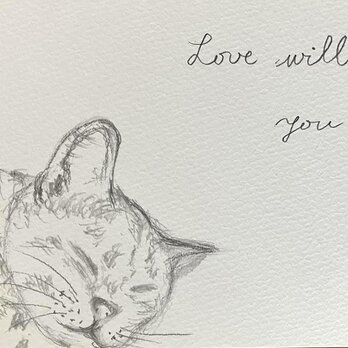 Love will
you